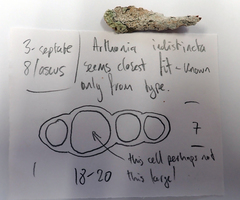 3-septate
8/ascus
Arthonia indistincta
seems closest fit - known
only from type.
7
this cell perhaps not
this large!
18-20